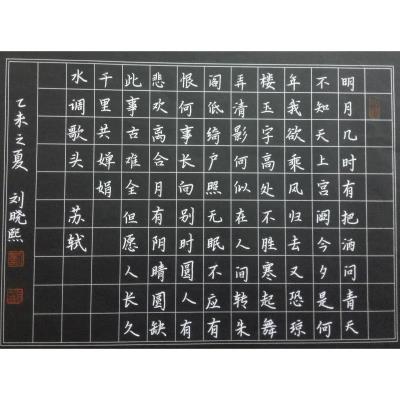 明月几时有把酒问青天
不知天上宫阙今夕是何
年我欲乘风归去又恐琼
楼玉宇高处不胜寒起舞
弄清影何似在人间转朱
阁低绮户照无眠不应有
恨何事长向别时圆人有
悲欢离合月有阴晴圆缺
此事古难全但愿人长久
千里共婵娟
水调歌头 苏轼
乙未之夏 刘晓熙